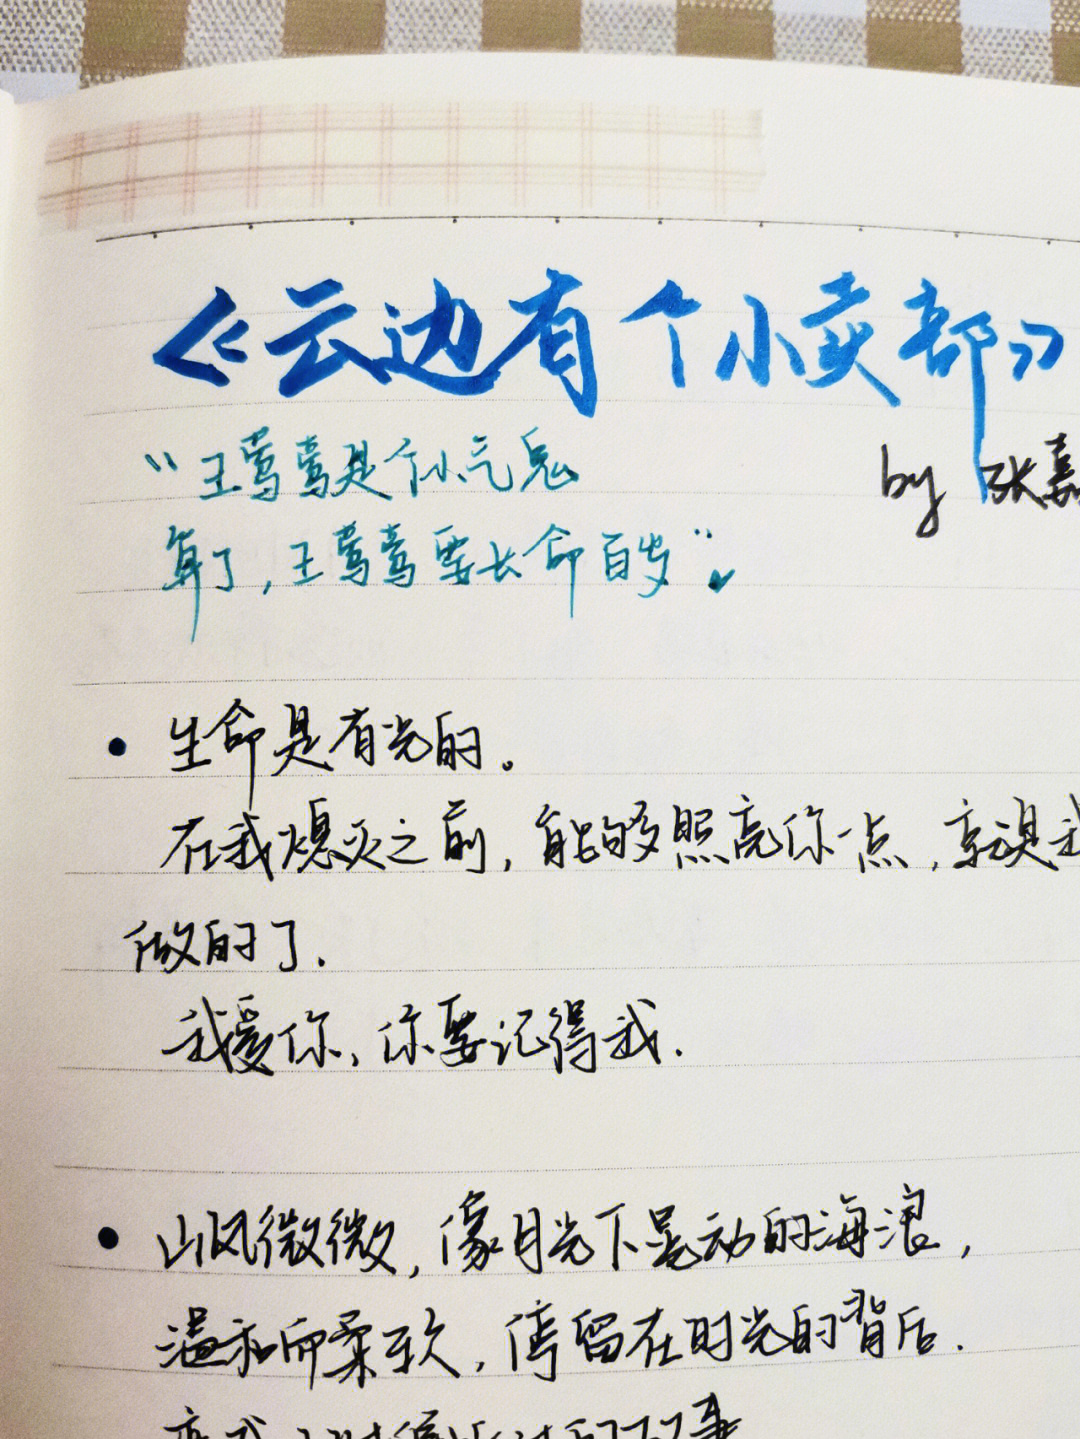 《云边有个小卖部》
“王莺莺是个小气鬼
by 张嘉
算了,王莺莺要长命百岁”。
• 生命是有光的。
在我熄灭之前,能够照亮你一点,就是我
做的了.
我爱你,你要记得我.
• 山风微微,像月光下晃动的海浪,
温和而柔软,停留在时光的背后.